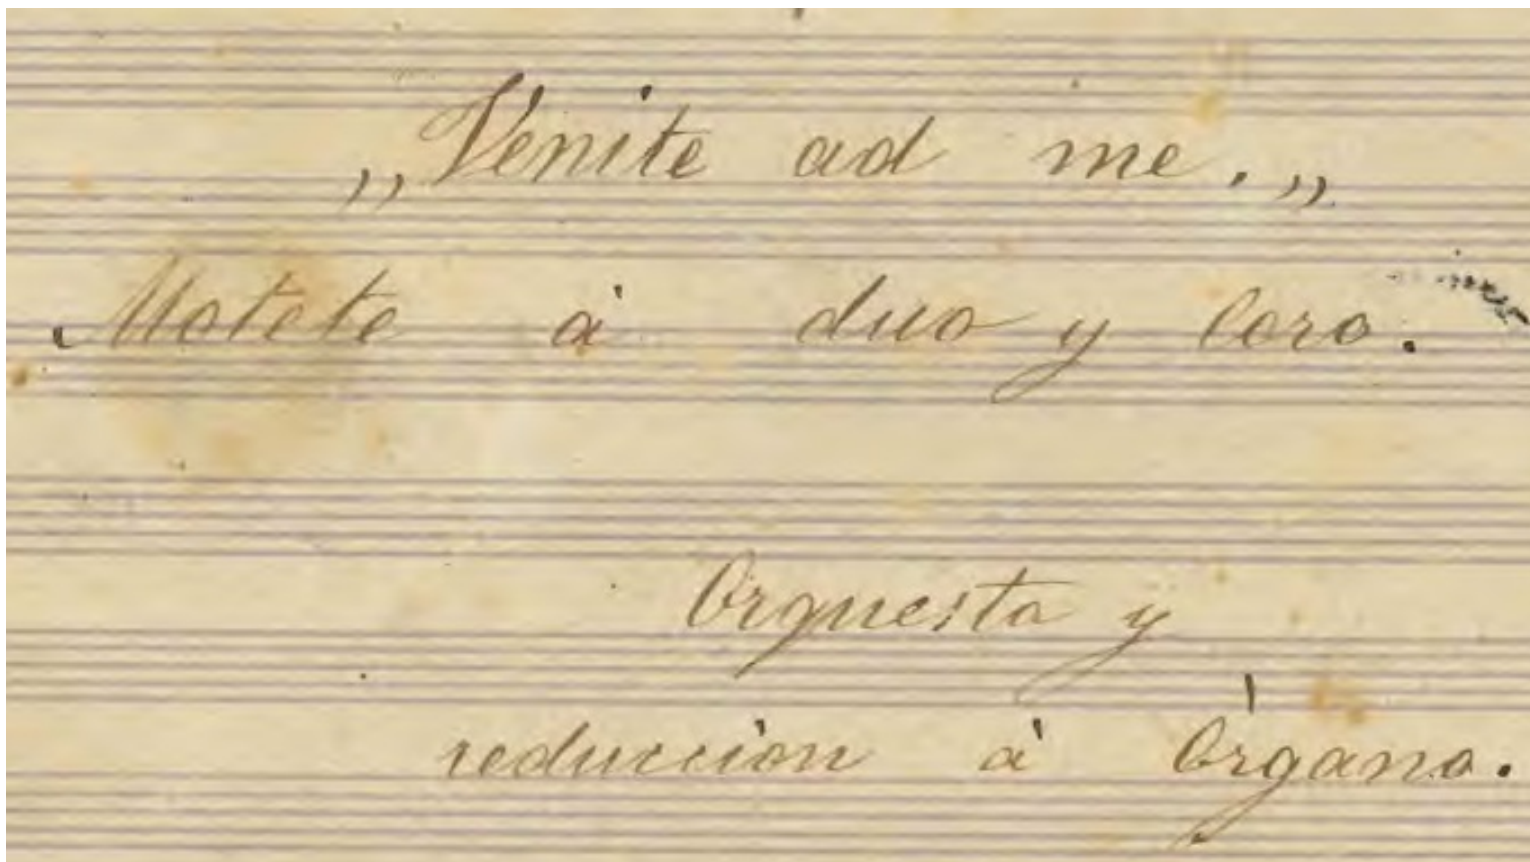 „Venite ad me.„
Motete à duo y Coro.
Orquesta y
reduccion à Òrgano.